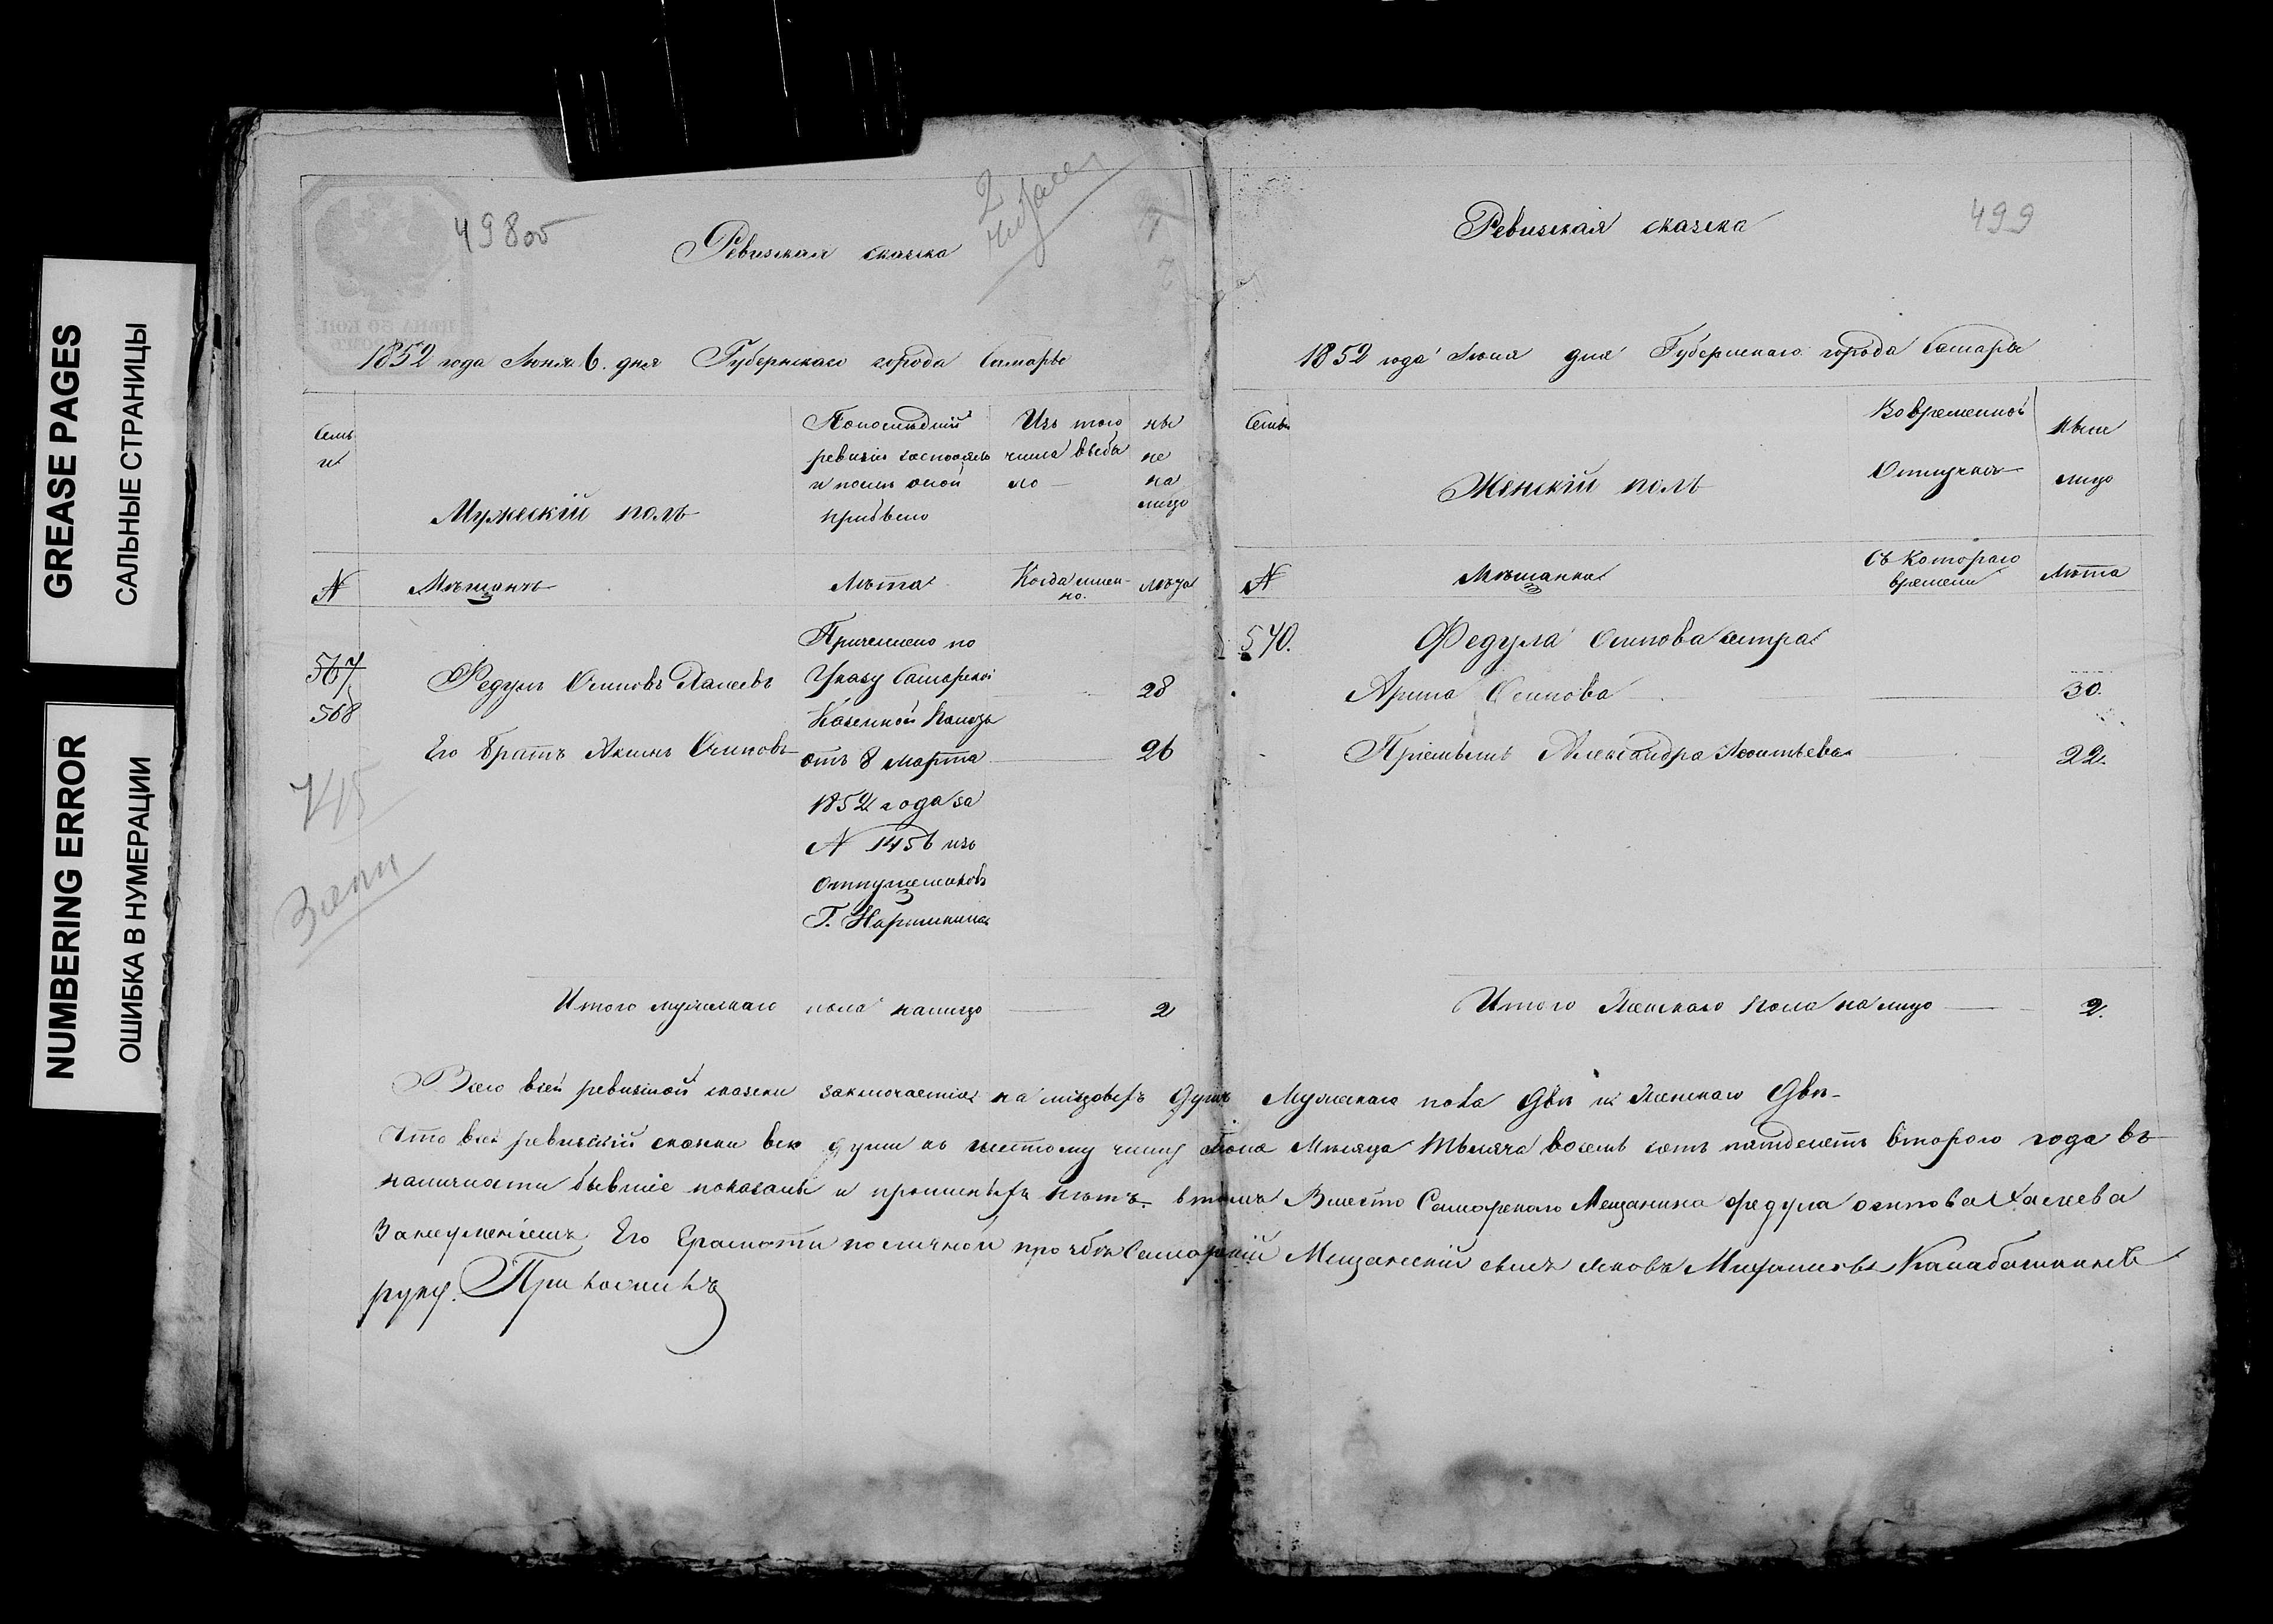 GREASE PAGES
САЛЬНЫЕ СТРАНИЦЫ
NUMBERING ERROR
ОШИБКА В НУМЕРАЦИИ
498об
2
Ревизская сказка
1852 года Июня 6. дня Губернскаго города Самары
Семь
и
Мужескій полъ
По последній
ревизіи состояло
и после оной
прибыло
Изъ того
числа выбы
ло
ны
не
на
лицо
№
Мѣщанъ
Лѣта
Когда имен-
но.
Лѣта
567
568
Федулъ Осиповъ Халеевъ
Его братъ Акимъ Осиповъ
Причислено по
Указу Самарской
Казенной Палаты
отъ 8 Марта
1852 года за
№ 1456 изъ
отпущенниковъ
Г. Нарышкина
28
26
715
Итого мужескаго пола налицо 2
499
Ревизская сказка
1852 года Июня дня Губернскаго города Самары
Семьи
Женскій полъ
Во временной
Отлучки
Ныне
лицо
№
Мѣщанки
Съ котораго
времени
Лѣта
540.
Федула Осипова сестра
Арина Осипова 30.
Пріемышъ Александра Леонтьева 22.
Итого Женскаго пола на лицо 2.
Всего всей ревизской сказки заключается на лицовыхъ душъ Мужескаго пола Две и Женскаго Две
Что всей ревизской сказки все души къ шестому числу Июня Месяца Тысяча восемь сотъ пятдесятъ второго года въ
наличности бывшіе показаны и прописныхъ нѣтъ. втомъ Вместо Самарскаго Мещанина Федула осипова Халеева
За неуменіемъ Его Грамоти по личной прозбе Самарскій Мещанский сынъ Яковъ Михаиловъ Калабашкинъ
руку. Приложилъ